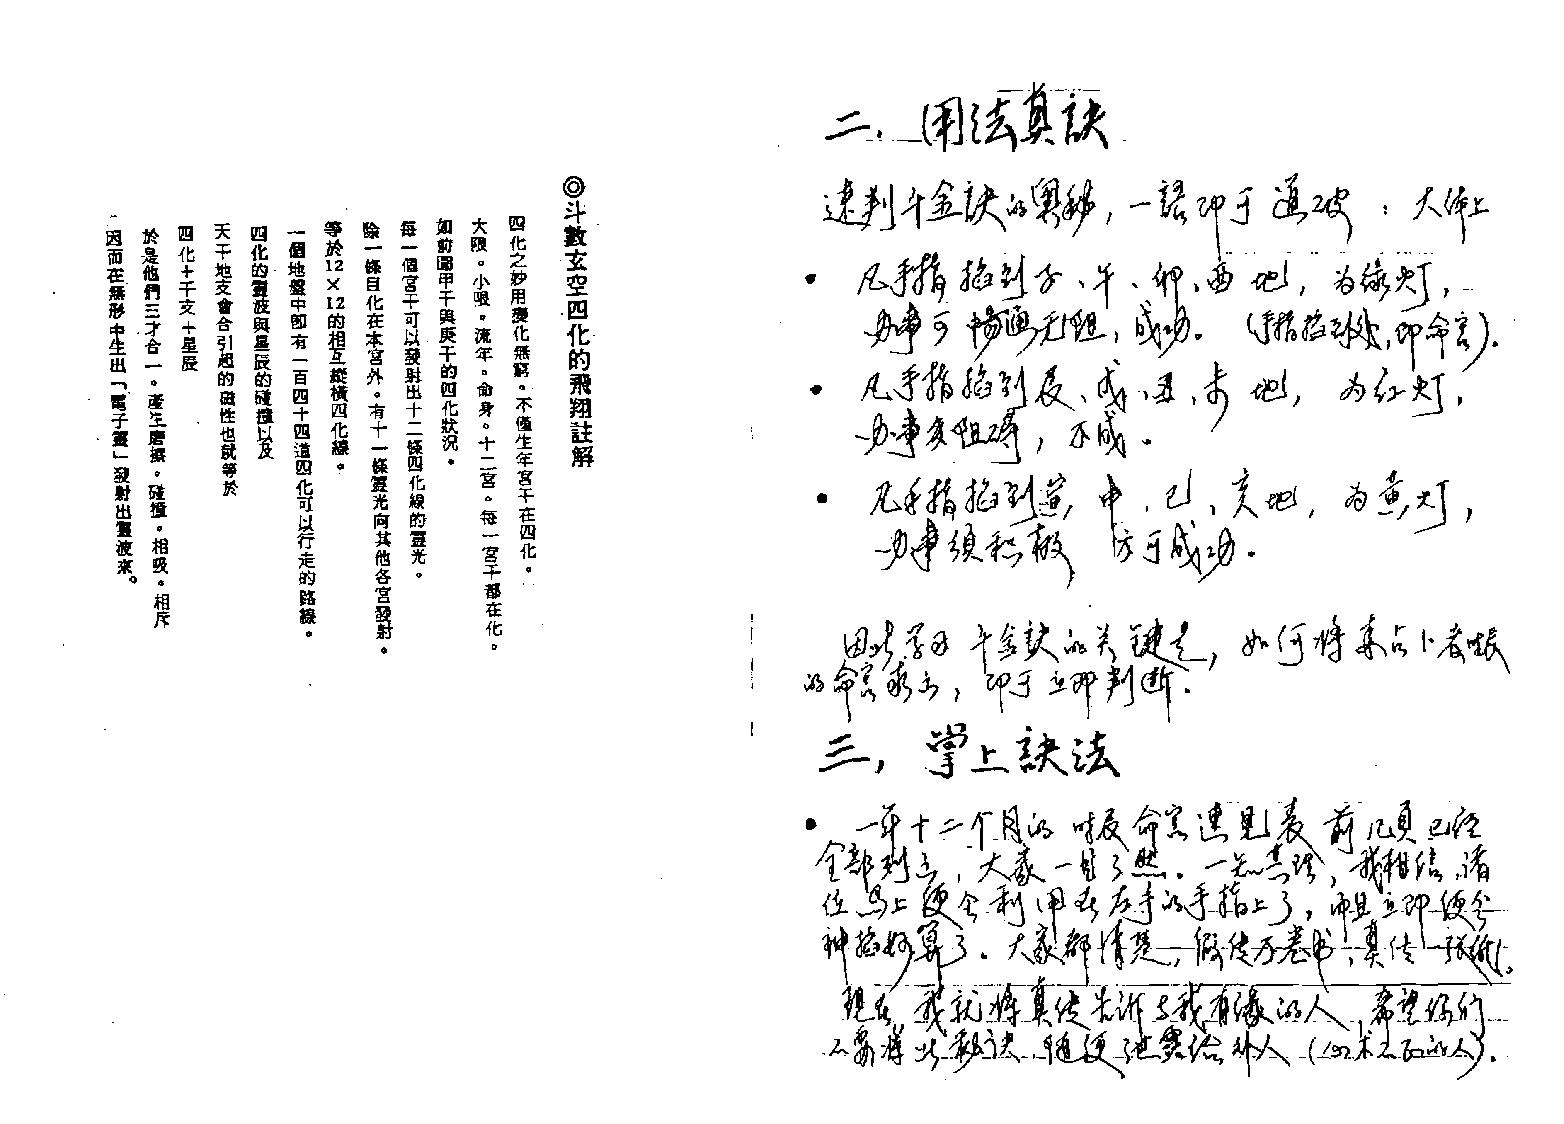 ◎斗數玄空四化的飛翔註解
四化之妙用變化無窮。不僅生年宮干在四化。
大限。小限。流年。命身。十二宮。每一宮干都在化。
如前圖甲干與庚干的四化狀況。
每一個宮干可以發射出十二條四化線的靈光。
除一條自化在本宮外。有十一條靈光向其他各宮發射。
等於12×12的相互縱橫四化線。
一個地盤中即有一百四十四道四化可以行走的路線。
四化的靈波與星辰的碰撞以及
天干地支會合引起的磁性也就等於
四化十干支十星辰
於是他們三才合一。產生磨擦。碰撞。相吸。相斥
因而在無形中生出「電子靈」發射出靈波來。
二.用法真訣
速判斗金訣的奧秘,一語即于道破:大体上
• 凡手指掐到子、午、卯、酉地,为绿灯,
办事可畅通无阻,成功。(手指掐到处,即命宫).
• 凡手指掐到辰、戌、丑、未地,为红灯,
办事多阻碍,不成。
• 凡手指掐到寅,申,巳,亥地,为黄灯,
办事须积极,方可成功。
因此学习斗金訣的关键是,如何将来占卜者时辰
的命宫求出,即于立即判断.
三,掌上訣法
• 一年十二个月的时辰命宫速見表前几頁已经
全部列出,大家一目了然。一知其理,我相信诸
位馬上便会利用在左手的手指上了,而且立即便会
神掐妙算了。大家都清楚,假传万卷书,真传一张纸。
現在,我就将真传告诉与我有缘的人,希望你们
不要将此秘訣随便泄露给外人(心术不正的人).